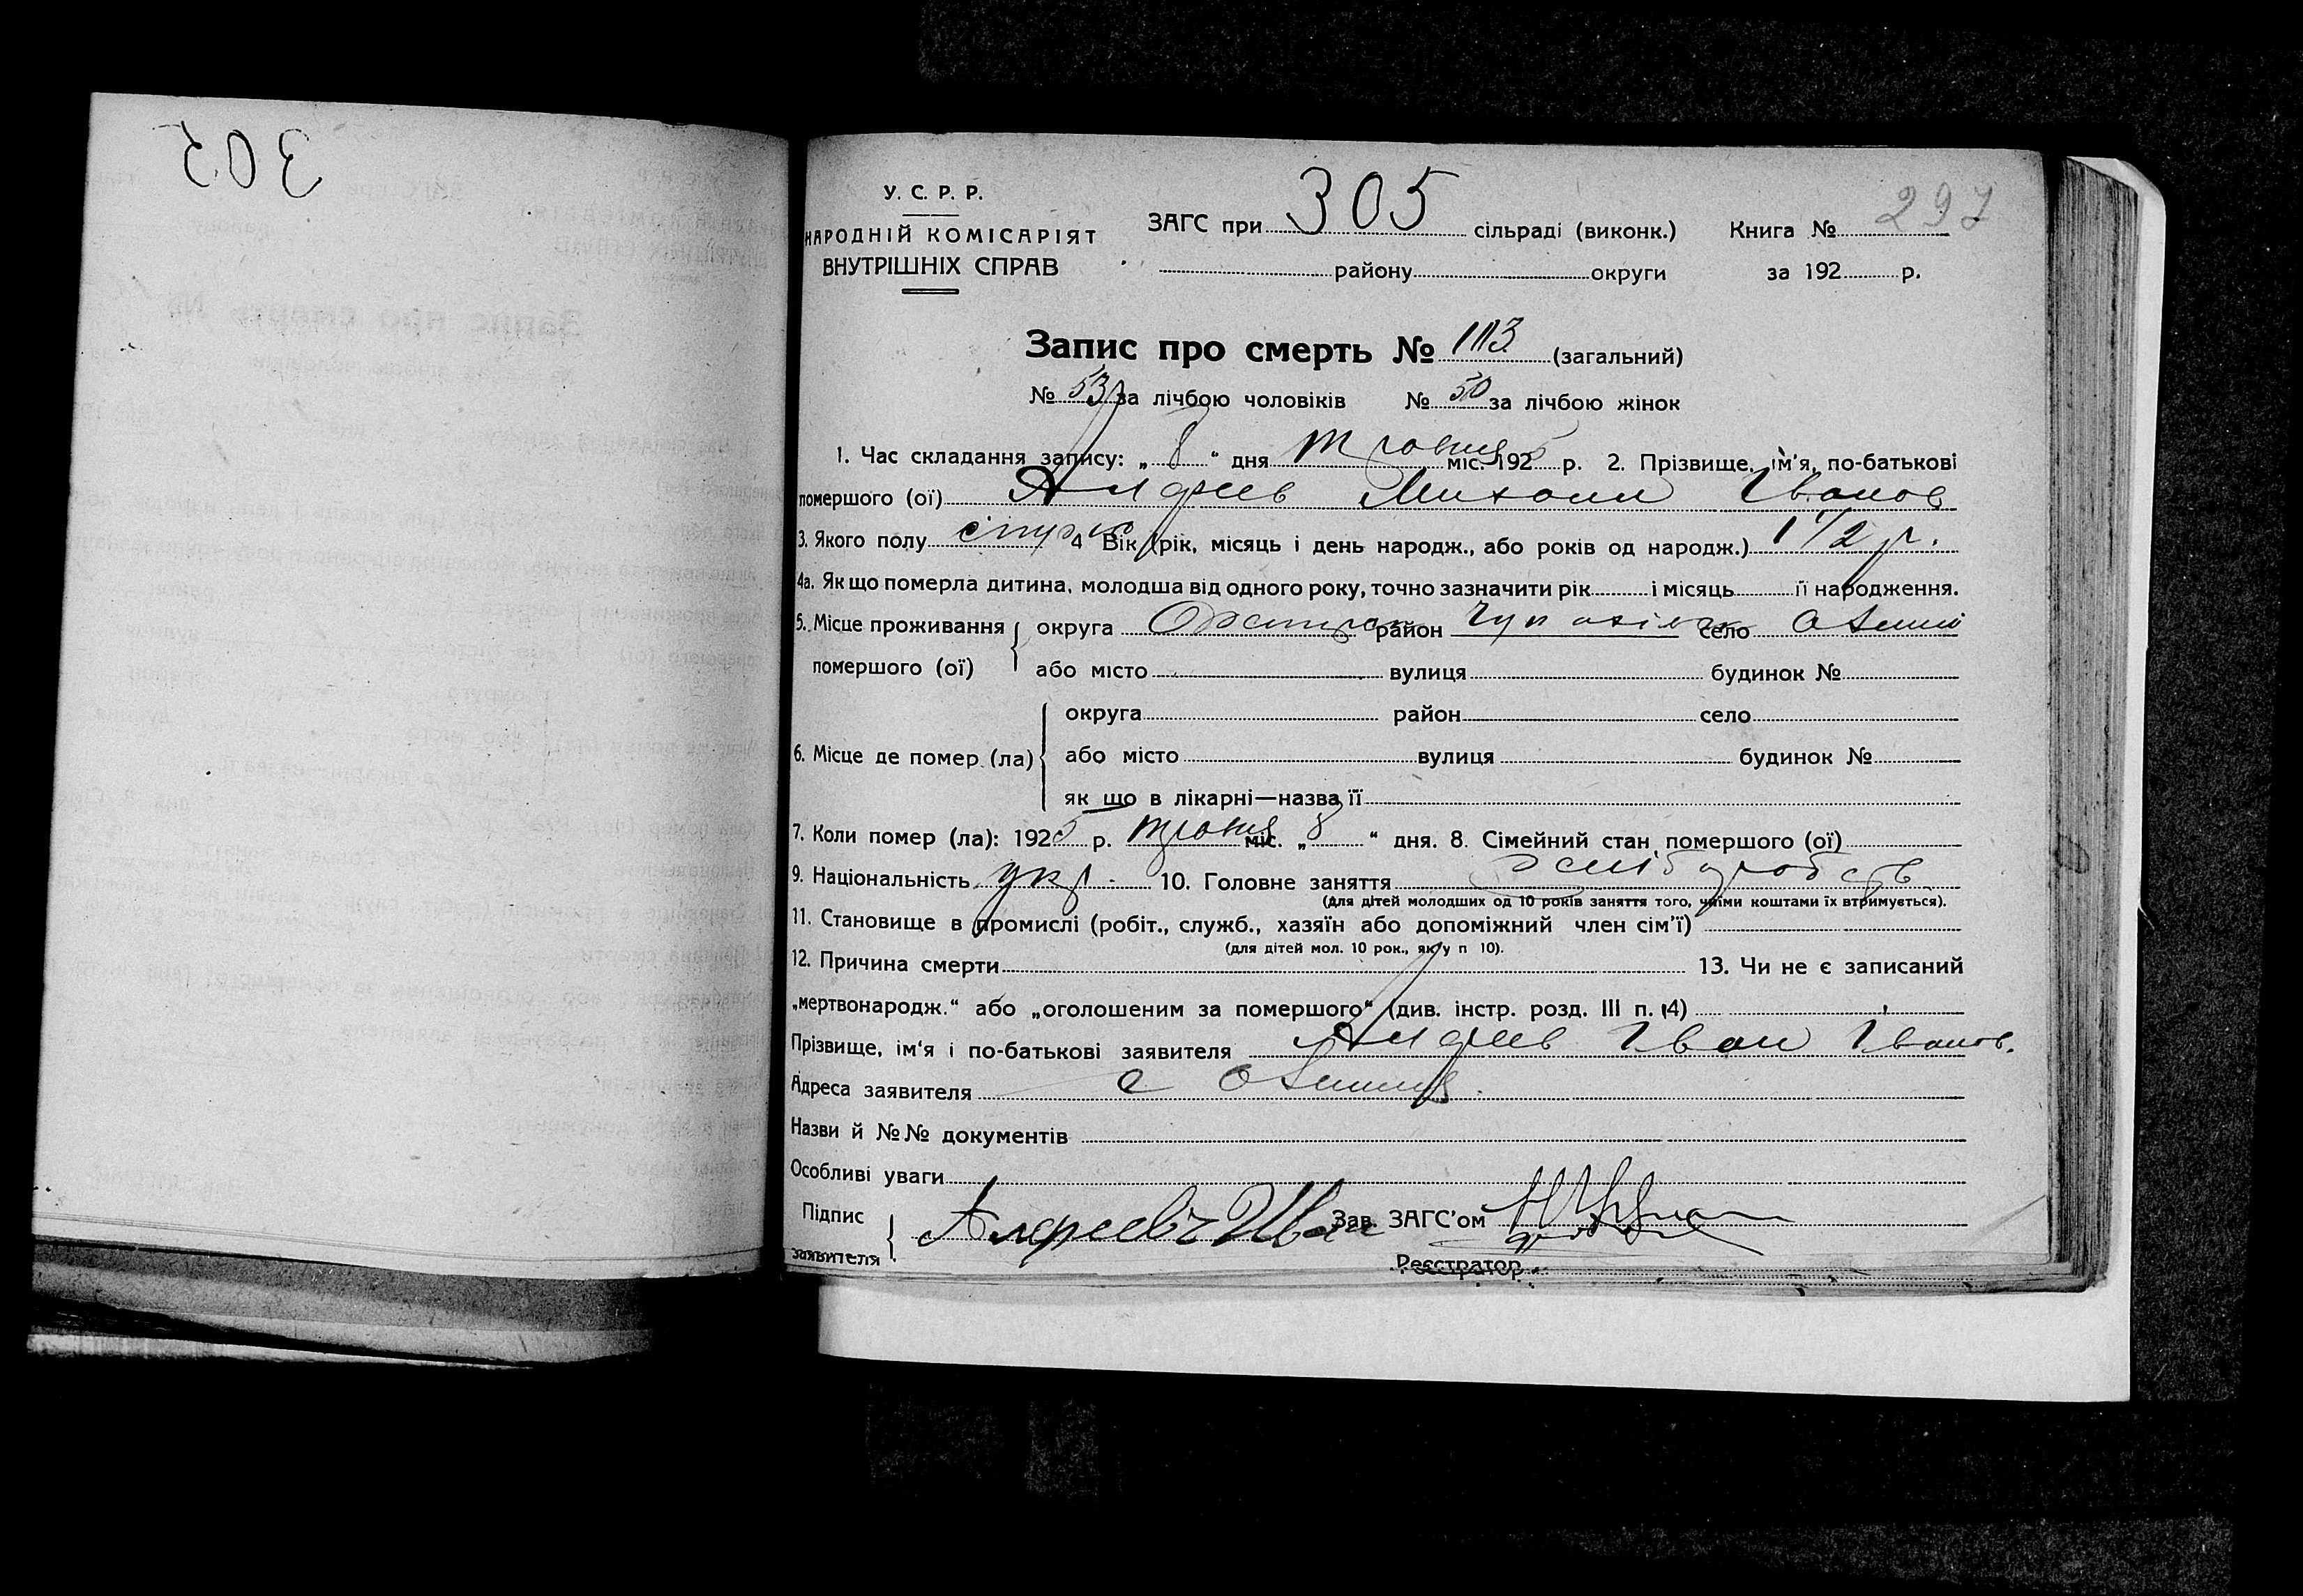 305
У. С. Р. Р.
НАРОДНІЙ КОМІСАРІЯТ
ВНУТРІШНІХ СПРАВ
ЗАГС при 305 сільраді (виконк.) Книга № 297
району округи за 192 р.
Запис про смерть № 103 (загальний)
№ 53 за лічбою чоловіків № 50 за лічбою жінок
1. Час складання запису: „ 8 “ дня травня міс. 1925 р. 2. Прізвище, ім'я, по-батькові
помершого (ої) Иванов
3. Якого полу 4 Вік (рік, місяць і день народж., або років од народж.) 1 1/2 р.
4а. Як що померла дитина, молодша від одного року, точно зазначити рік і місяць її народження.
5. Місце проживання округа район село
помершого (ої) або місто вулиця будинок №
округа район село
6. Місце де помер (ла) або місто вулиця будинок №
як що в лікарні—назва її
7. Коли помер (ла): 1925 р. травня міс. „ 8 “ дня. 8. Сімейний стан помершого (ої)
9. Національність укр. 10. Головне заняття
(Для дітей молодших од 10 років заняття того, чиїми коштами їх втримується).
11. Становище в промислі (робіт., служб., хазяїн або допоміжний член сім'ї)
(для дітей мол. 10 рок., як у п 10).
12. Причина смерти 13. Чи не є записаний
„мертвонародж.“ або „оголошеним за помершого“ (див. інстр. розд. III п. 14)
Прізвище, ім'я і по-батькові заявителя Іван Іванов.
Адреса заявителя с
Назви й №№ документів
Особливі уваги
Підпис
заявителя Иван Зав. ЗАГС'ом
Реєстратор